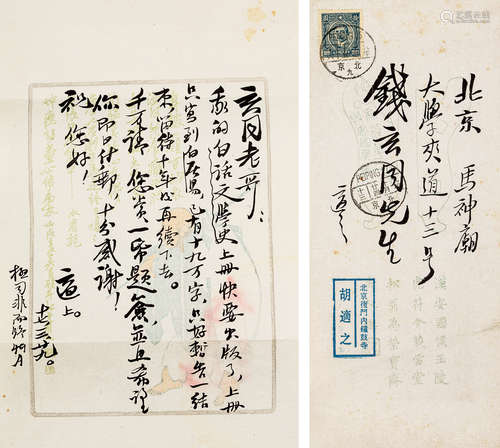 玄同老哥：
我的白话文學史上冊快要出版了，上冊
只寫到白居易，已有十九万字，只好暫告一结
束，留待十年后再續下去。
千万請 您賞一個題簽，並且希望
你即日付郵，十分感谢！
祝 您好！
適上。
極司非而路
北京 馬神廟
大學夾道十三号
錢玄同先生
適之
北京後門内鐘鼓寺
胡適之
北京